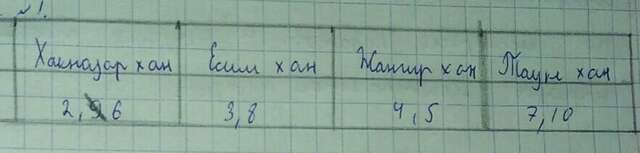 №1.
Хакназар хан Есим хан Жангир хан Тауке хан
2, 6 3,8 4,5 7,10